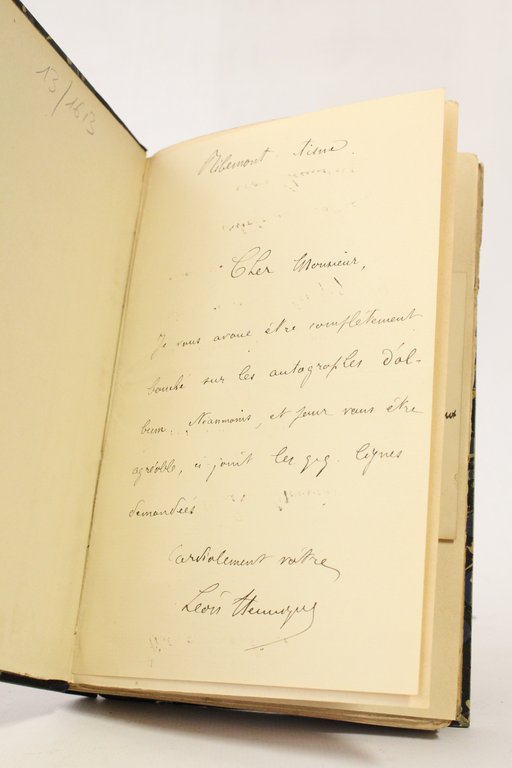 13/1613
Ribemont Aisne.
Cher Monsieur,
Je vous avoue être complétement
bouché sur les autographes d'al-
bum. Néanmoins, et pour vous être
agréable, ci joint les qq. lignes
demandées
Cordialement vôtre
Léon Hennique
ux